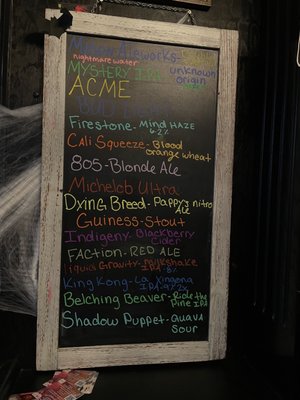 Mason Aleworks-
nightmare water
MYSTERY IPA - unknown
origin
ACME
Firestone - MIND HAZE
6.2%
Cali Squeeze - Blood
orange wheat
805 - Blonde Ale
Michelob Ultra
Dying Breed - Pappy's nitro
ALE
Guiness - Stout
Indigeny - Blackberry
Cider
FACTION - RED ALE
Liquid Gravity - milkshake
IPA - 8%
King Kong - La
IPA
Belching Beaver - Ride the
Pine IPA
Shadow Puppet - Guava
Sour